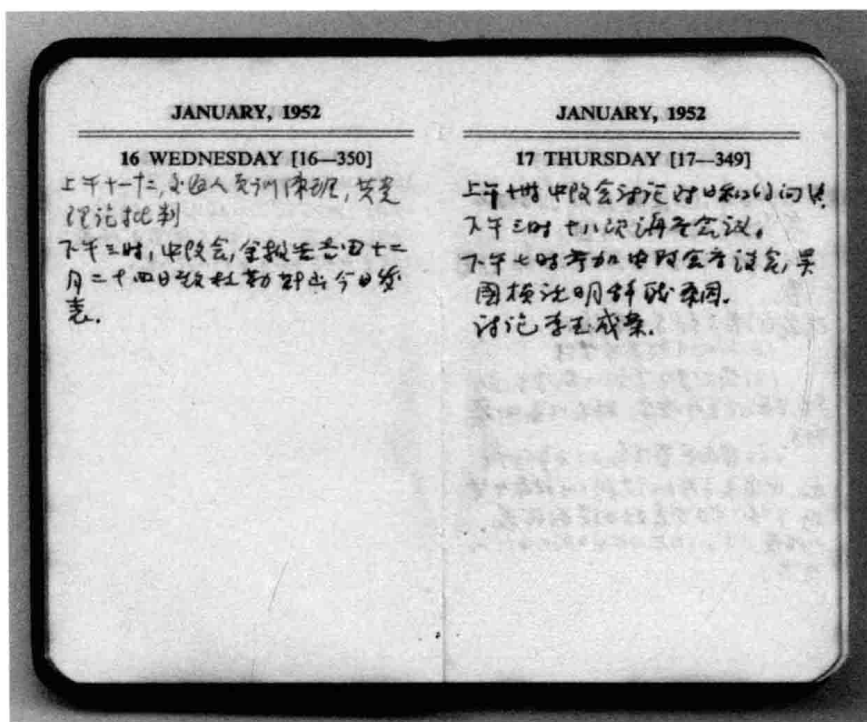 JANUARY, 1952
16 WEDNESDAY [16—350]
上午十一十二, 人员训练班, 共党
理论批判
下午三时, 中改会, 全报告吉田十二
月二十四日致杜勒斯函今日发
表.
JANUARY, 1952
17 THURSDAY [17—349]
上午十时中改会讨论对日和约问题
下午三时十八次讲座会议。
下午七时参加中改会座谈会, 吴
國桢说明辞职原因.
讨论李玉成案.